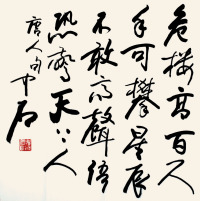 危樓高百尺
手可攀星辰
不敢高聲語
恐驚天上人
唐人句 中石